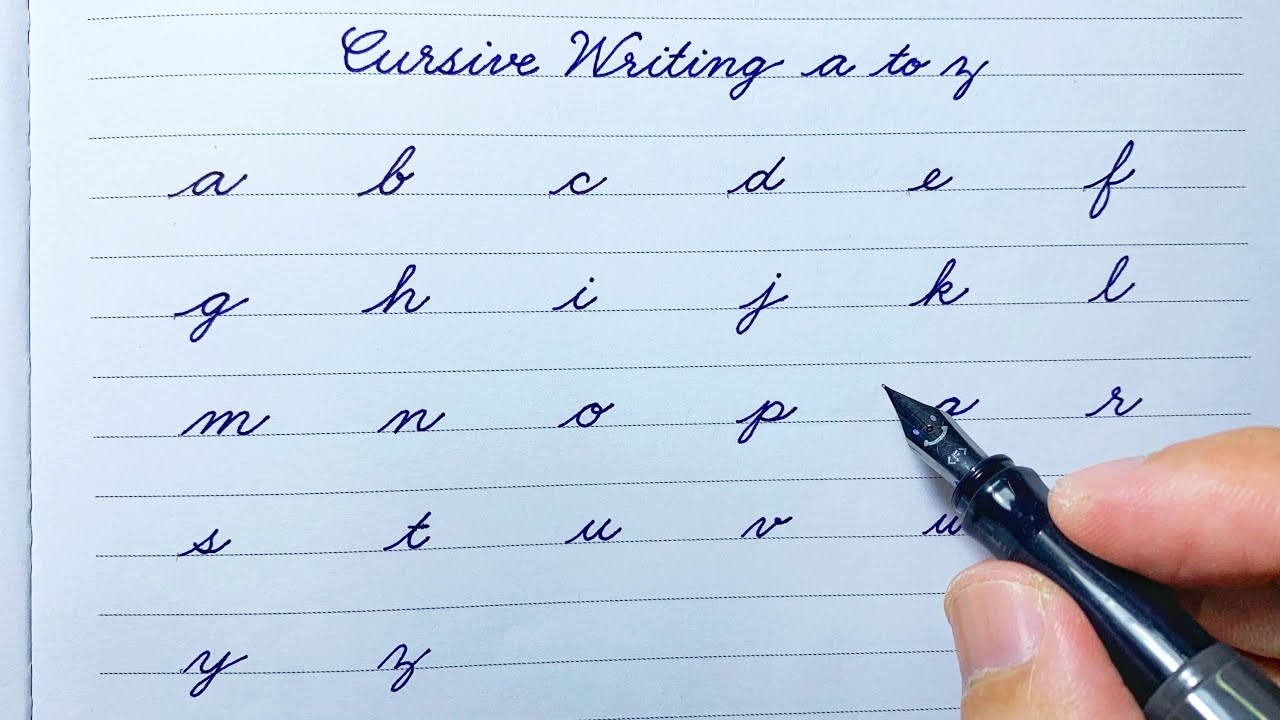 Cursive Writing a to z
a b c d e f
g h i j k l
m n o p r
s t u v
y z
<F>